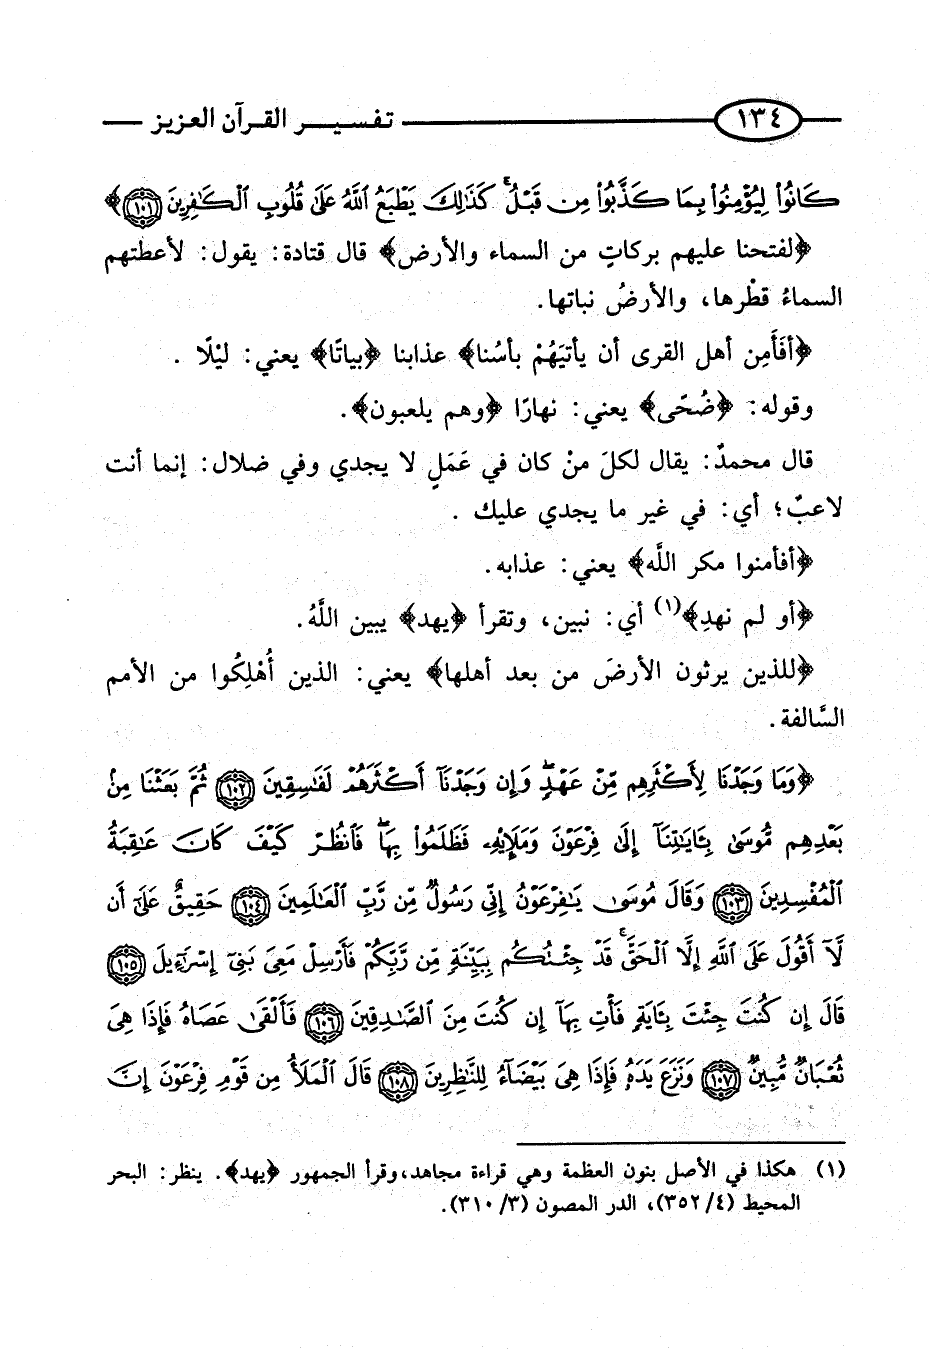 ١٣٤ تفسير القرآن العزيز
كَانُوا۟ لِيُؤْمِنُوا۟ بِمَا كَذَّبُوا۟ مِن قَبْلُ ۚ كَذَٰلِكَ يَطْبَعُ ٱللَّهُ عَلَىٰ قُلُوبِ ٱلْكَٰفِرِينَ ﴿١٠١﴾﴾
﴿لفتحنا عليهم بركاتٍ من السماء والأرض﴾ قال قتادة: يقول: لأعطتهم
السماءُ قطْرها، والأرضُ نباتها.
﴿أفَأَمِن أهل القرى أن يأتيَهُمْ بأسُنا﴾ عذابنا ﴿بياتًا﴾ يعني: ليْلًا .
وقوله: ﴿ضُحًى﴾ يعني: نهارًا ﴿وهم يلعبون﴾.
قال محمدٌ: يقال لكلَ منْ كان في عَمَلٍ لا يجدي وفي ضلال: إنما أنت
لاعبٌ؛ أي: في غير ما يجدي عليك .
﴿أفأمنوا مكر اللَّه﴾ يعني: عذابه.
﴿أو لم نهدِ﴾(١) أي: نبين، وتقرأ ﴿يهد﴾ يبين اللَّهُ.
﴿للذين يرثون الأرضَ من بعد أهلها﴾ يعني: الذين أُهْلِكُوا من الأمم
السَّالفة.
﴿وَمَا وَجَدْنَا لِأَكْثَرِهِم مِّنْ عَهْدٍ ۖ وَإِن وَجَدْنَآ أَكْثَرَهُمْ لَفَٰسِقِينَ ﴿١٠٢﴾ ثُمَّ بَعَثْنَا مِنۢ
بَعْدِهِم مُّوسَىٰ بِـَٔايَٰتِنَآ إِلَىٰ فِرْعَوْنَ وَمَلَإِي۟هِۦ فَظَلَمُوا۟ بِهَا ۖ فَٱنظُرْ كَيْفَ كَانَ عَٰقِبَةُ
ٱلْمُفْسِدِينَ ﴿١٠٣﴾ وَقَالَ مُوسَىٰ يَٰفِرْعَوْنُ إِنِّى رَسُولٌ مِّن رَّبِّ ٱلْعَٰلَمِينَ ﴿١٠٤﴾ حَقِيقٌ عَلَىٰٓ أَن
لَّآ أَقُولَ عَلَى ٱللَّهِ إِلَّا ٱلْحَقَّ ۚ قَدْ جِئْتُكُم بِبَيِّنَةٍ مِّن رَّبِّكُمْ فَأَرْسِلْ مَعِىَ بَنِىٓ إِسْرَٰٓءِيلَ ﴿١٠٥﴾
قَالَ إِن كُنتَ جِئْتَ بِـَٔايَةٍ فَأْتِ بِهَآ إِن كُنتَ مِنَ ٱلصَّٰدِقِينَ ﴿١٠٦﴾ فَأَلْقَىٰ عَصَاهُ فَإِذَا هِىَ
ثُعْبَانٌ مُّبِينٌ ﴿١٠٧﴾ وَنَزَعَ يَدَهُۥ فَإِذَا هِىَ بَيْضَآءُ لِلنَّٰظِرِينَ ﴿١٠٨﴾ قَالَ ٱلْمَلَأُ مِن قَوْمِ فِرْعَوْنَ إِنَّ
(١) هكذا في الأصل بنون العظمة وهي قراءة مجاهد،وقرأ الجمهور ﴿يهد﴾. ينظر: البحر
المحيط (٣٥٢/٤)، الدر المصون (٣١٠/٣).